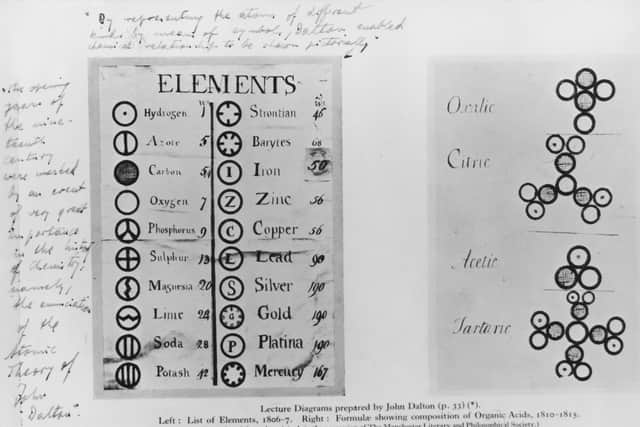 "By representing the atoms of different
kinds by means of symbols, Dalton enabled
chemical relationships to be shown pictorially"
"The opening
years of
the nine-
teenth
century
were marked
by an event
of very great
importance
in the history
of Chemistry;
namely,
the enunciation
of the
Atomic
Theory of
John
Dalton".
ELEMENTS
Hydrogen 1
Azote 5
Carbon 5
Oxygen 7
Phosphorus 9
Sulphur 13
Magnesia 20
Lime 24
Soda 28
Potash 42
Strontian 46
Barytes 68
I Iron 50
Z Zinc 56
C Copper 56
L Lead 90
S Silver 190
G Gold 190
P Platina 190
Mercury 167
Oxalic
Citric
Acetic
Tartaric
Lecture Diagrams prepared by John Dalton (p. 33) (*).
Left : List of Elements, 1806-7. Right : Formulæ showing composition of Organic Acids, 1810-1815.
of The Manchester Literary and Philosophical Society.)